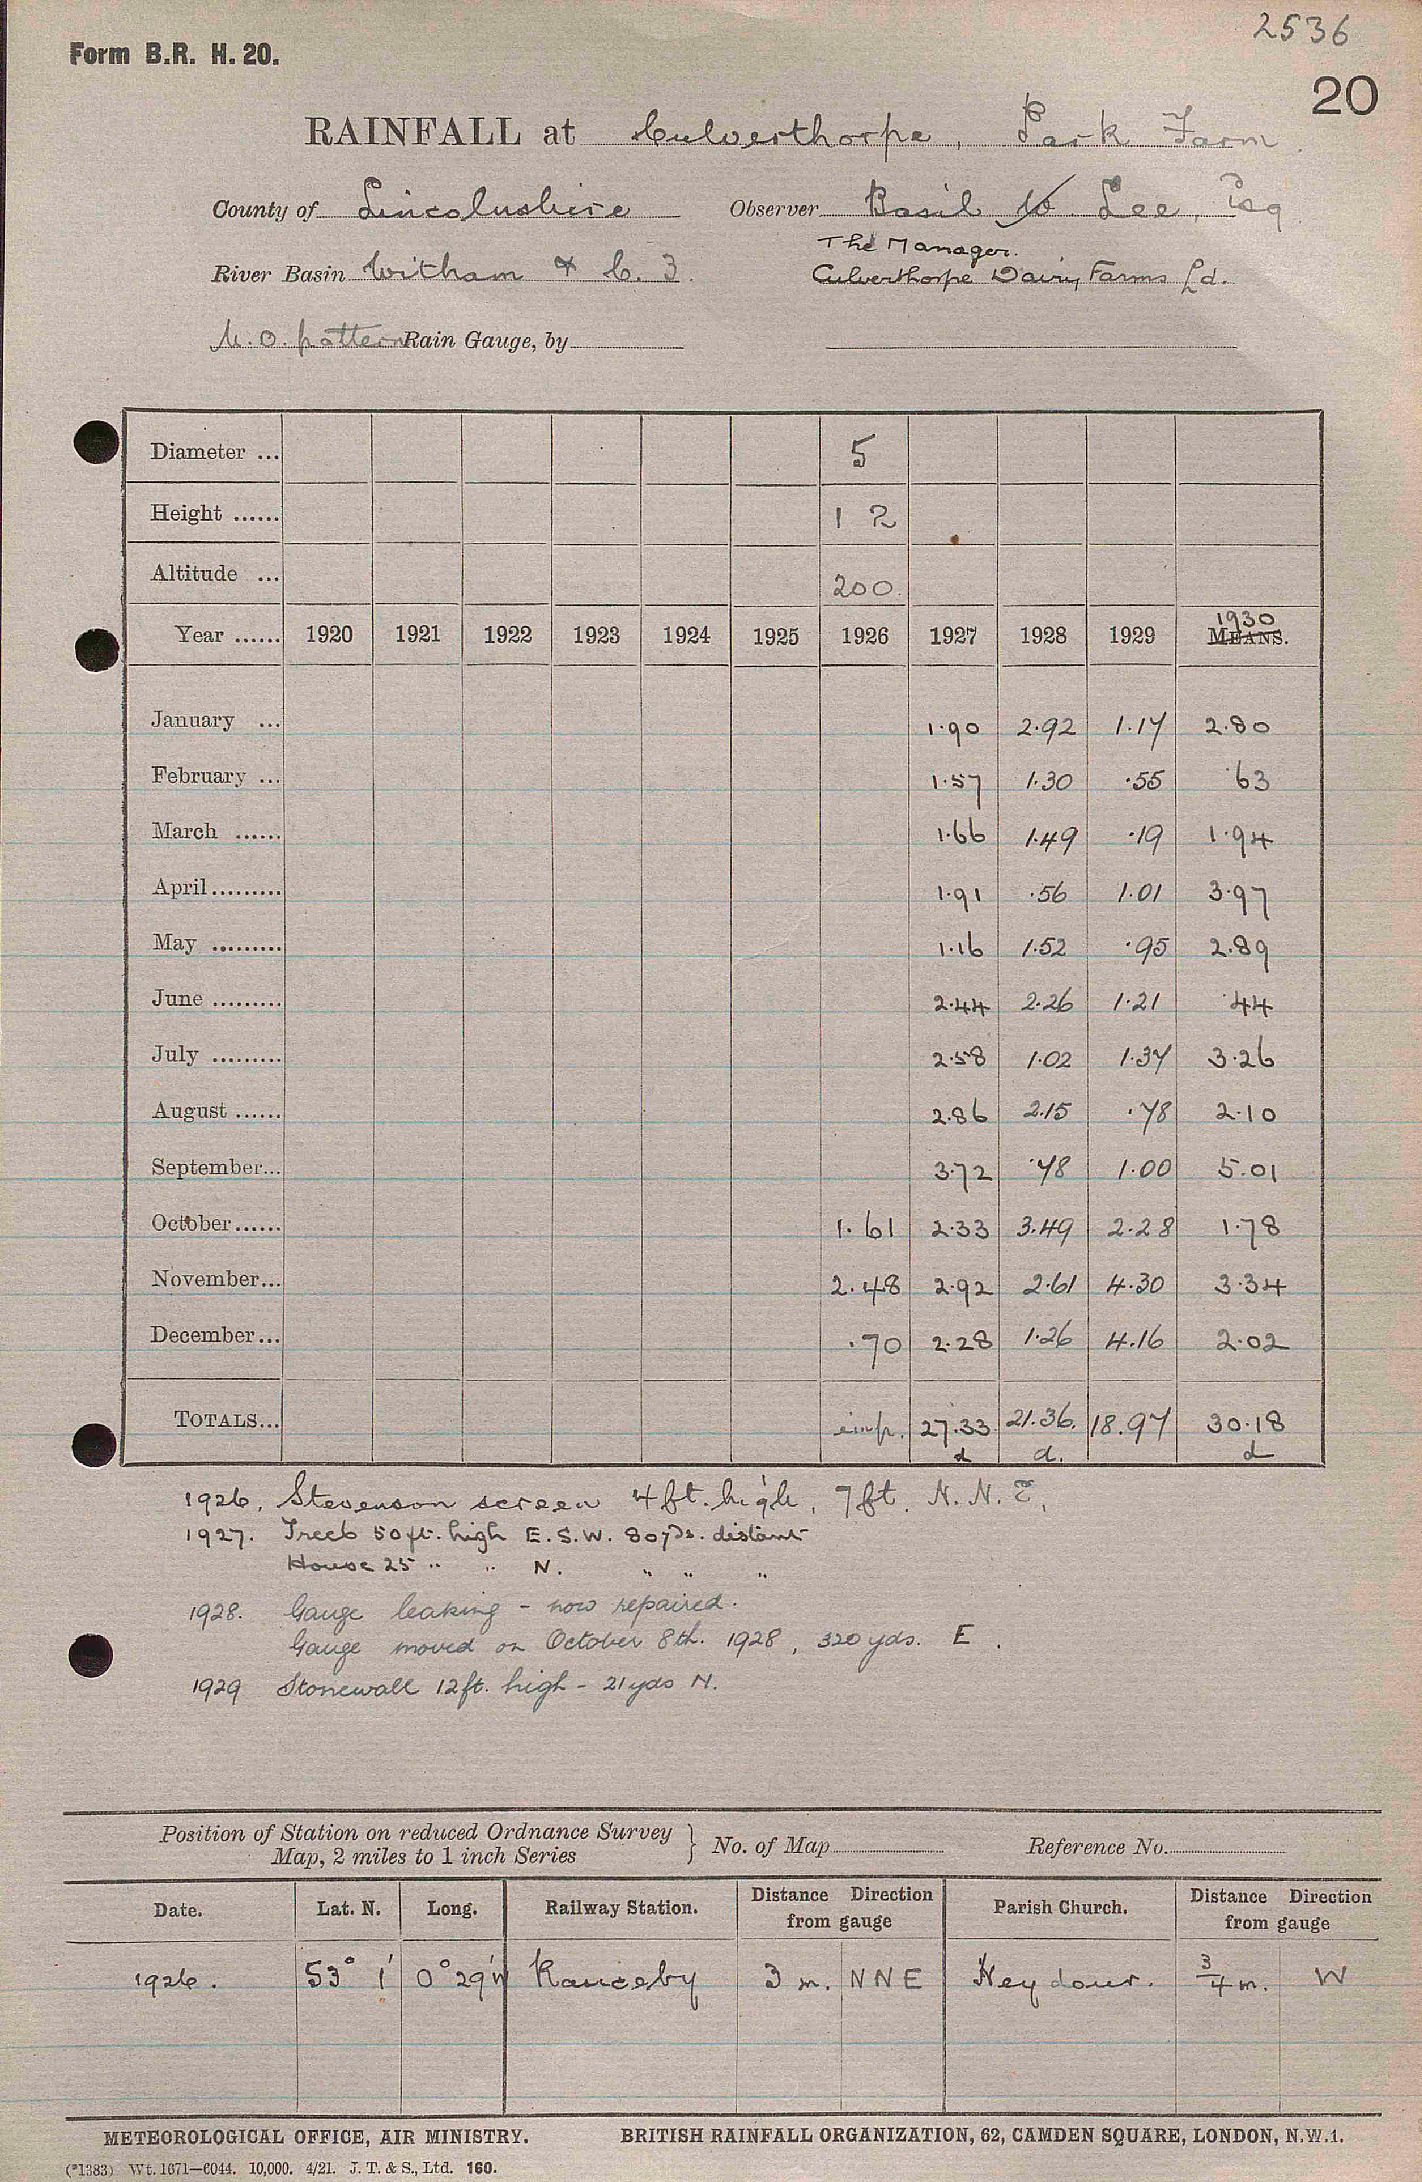 2536
Form B.R. H. 20.
20
RAINFALL at Culverthorpe, Park Farm.
County of Lincolnshire Observer Basil W. Lee, Esq
The Manager.
River Basin Witham & C. 3. Culverthorpe Dairy Farms Ld.
M.O. pattern Rain Gauge, by
Diameter ... 5
Height ...... 12
Altitude ... 200.
Year ...... 1920 1921 1922 1923 1924 1925 1926 1927 1928 1929 1930 MEANS.
January ... 1.90 2.92 1.17 2.80
February ... 1.57 1.30 .55 .63
March ...... 1.66 1.49 .19 1.94
April ......... 1.91 .56 1.01 3.97
May ......... 1.16 1.52 .95 2.89
June ......... 2.44 2.26 1.21 .44
July ......... 2.58 1.02 1.37 3.26
August ...... 2.86 2.15 .78 2.10
September... 3.72 .78 1.00 5.01
October ...... 1.61 2.33 3.49 2.28 1.78
November... 2.48 2.92 2.61 4.30 3.34
December... .70 2.28 1.26 4.16 2.02
TOTALS... imp. 27.33 21.36. 18.97 30.18
d d. d
1926. Stevenson screen 4ft. high, 7ft. N.N.E.
1927. Trees 50 ft. high E.S.W. 80 yds. distant
House 25 " " N. " " "
1928. Gauge leaking - now repaired.
Gauge moved on October 8th. 1928, 320 yds. E.
1929 Stonewall 12ft. high - 21 yds N.
Position of Station on reduced Ordnance Survey Map, 2 miles to 1 inch Series } No. of Map Reference No.
Date. Lat. N. Long. Railway Station. Distance Direction from gauge Parish Church. Distance Direction from gauge
1926. 53° 1' 0° 29' W Rauceby 3 m. NNE Heydour. 3/4 m. W
METEOROLOGICAL OFFICE, AIR MINISTRY. BRITISH RAINFALL ORGANIZATION, 62, CAMDEN SQUARE, LONDON, N.W.1.
(*1383) Wt. 1671—6044. 10,000. 4/21. J. T. & S., Ltd. 160.